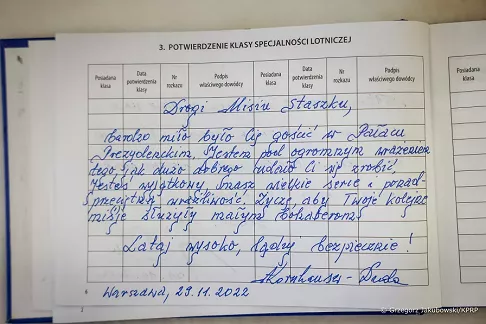 3. POTWIERDZENIE KLASY SPECJALNOŚCI LOTNICZEJ
Posiadana klasa Data potwierdzenia klasy Nr rozkazu Podpis właściwego dowódcy Posiadana klasa Data potwierdzenia klasy Nr rozkazu Podpis właściwego dowódcy
Posiadana klasa
Drogi Misiu Staszku,
bardzo miło było Cię gościć w Pałacu
Prezydenckim. Jestem pod ogromnym wrażeniem
tego, jak dużo dobrego udało Ci się zrobić.
Jesteś wyjątkowy, masz wielkie serce i ponad-
przeciętną wrażliwość. Życzę, aby Twoje kolejne
misje służyły małym bohaterom.
Lataj wysoko, ląduj bezpiecznie!
Kornhauser-Duda
Warszawa, 29.11.2022
© Grzegorz Jakubowski/KPRP